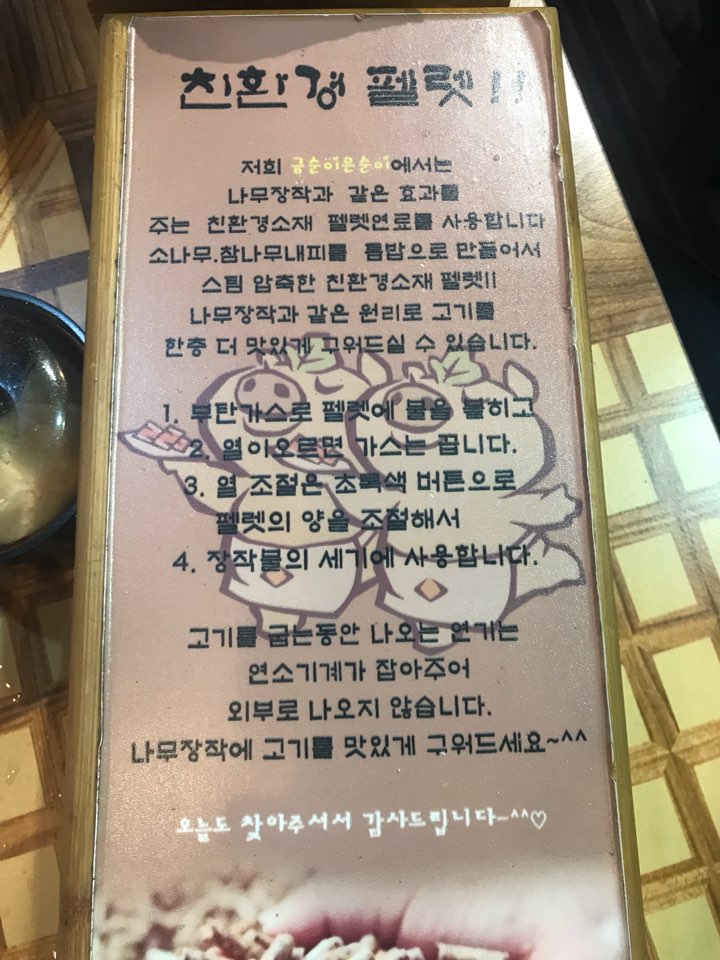 친환경 펠렛!!
저희 금순이은순이에서는
나무장작과 같은 효과를
주는 친환경소재 펠렛연료를 사용합니다
소나무.참나무내피를 톱밥으로 만들어서
스팀 압축한 친환경소재 펠렛!!
나무장작과 같은 원리로 고기를
한층 더 맛있게 구워드실 수 있습니다.
1. 부탄가스로 펠렛에 불을 붙히고
2. 열이오르면 가스는 끕니다.
3. 열 조절은 초록색 버튼으로
펠렛의 양을 조절해서
4. 장작불의 세기에 사용합니다.
고기를 굽는동안 나오는 연기는
연소기계가 잡아주어
외부로 나오지 않습니다.
나무장작에 고기를 맛있게 구워드세요~^^
오늘도 찾아주셔서 감사드립니다~^^♡